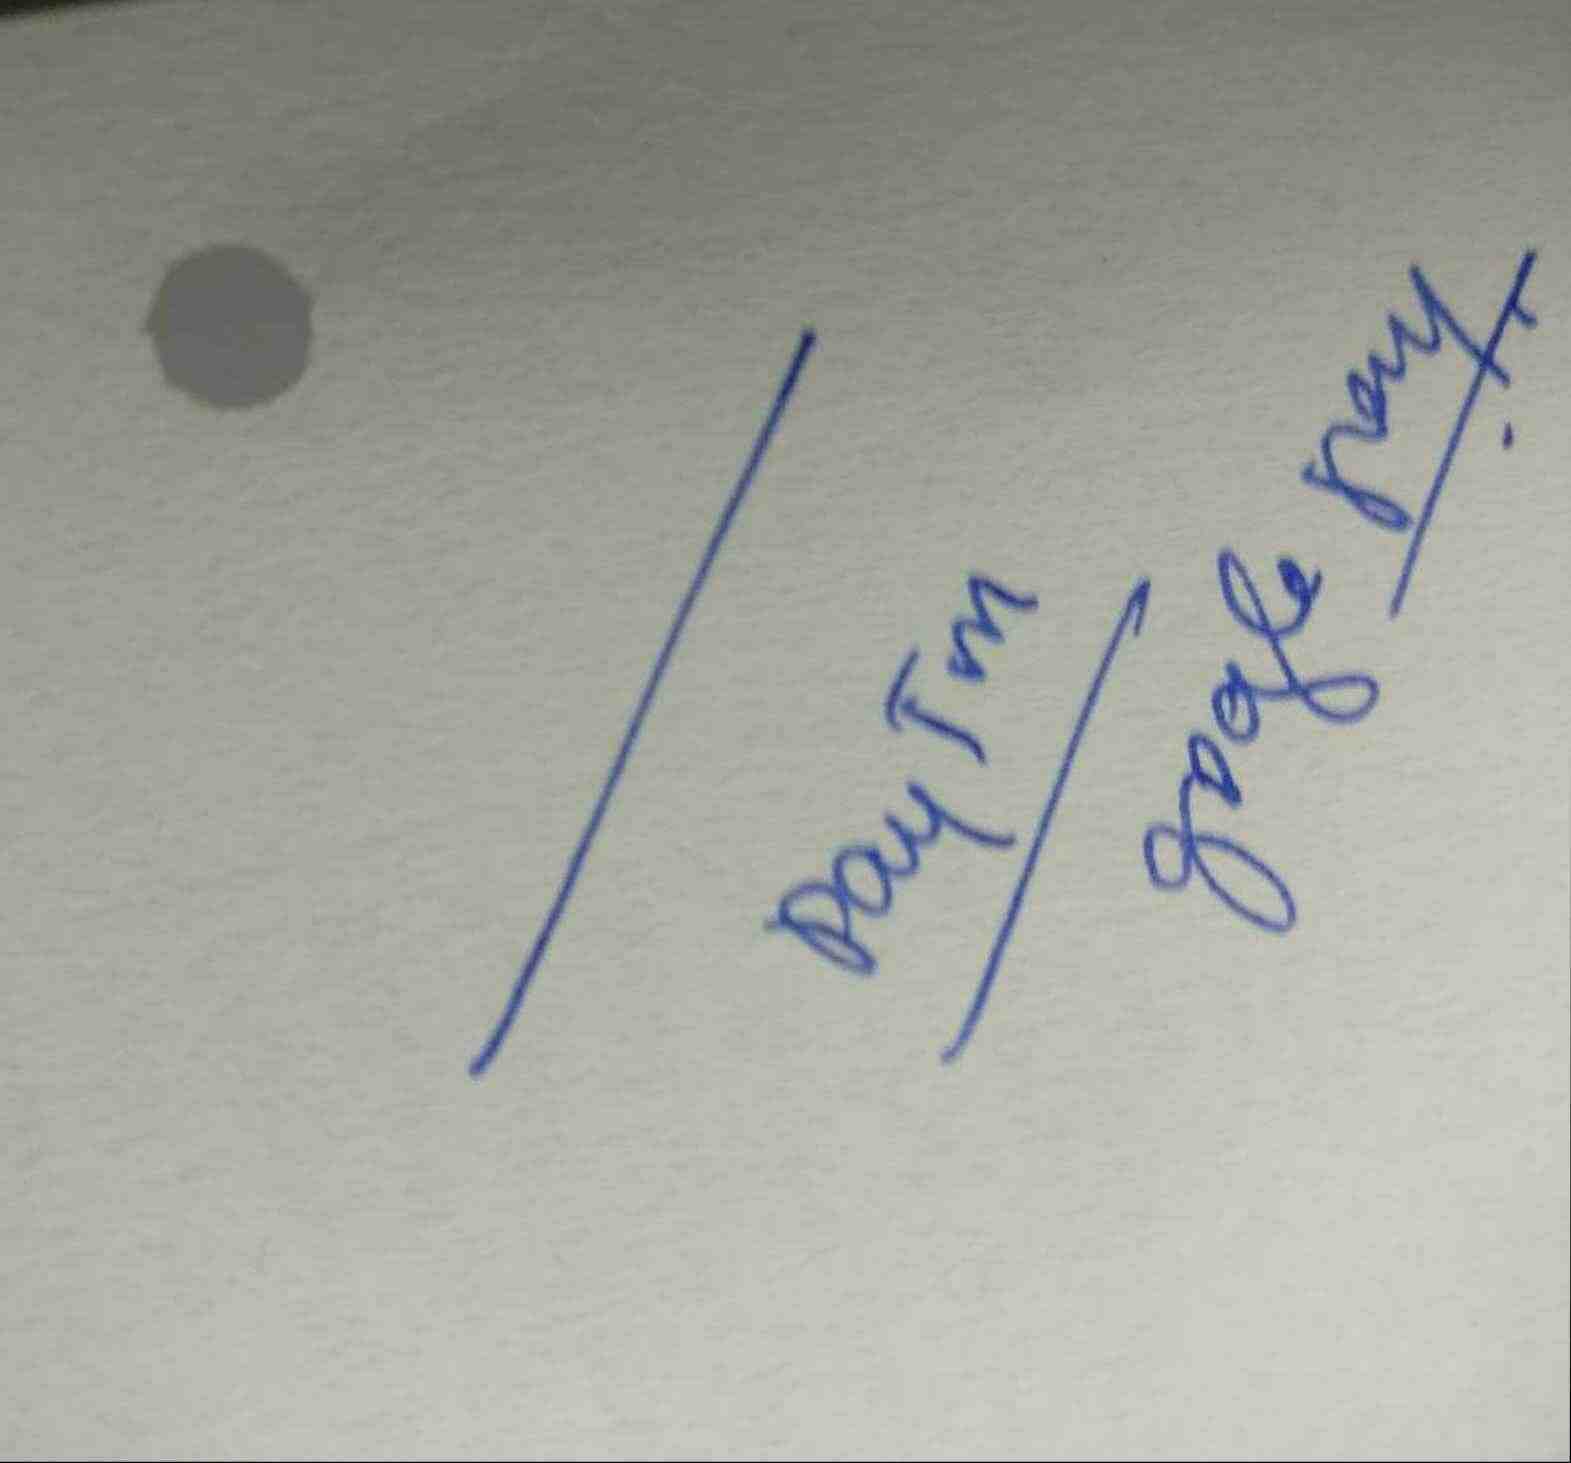 Pay Tm
google pay